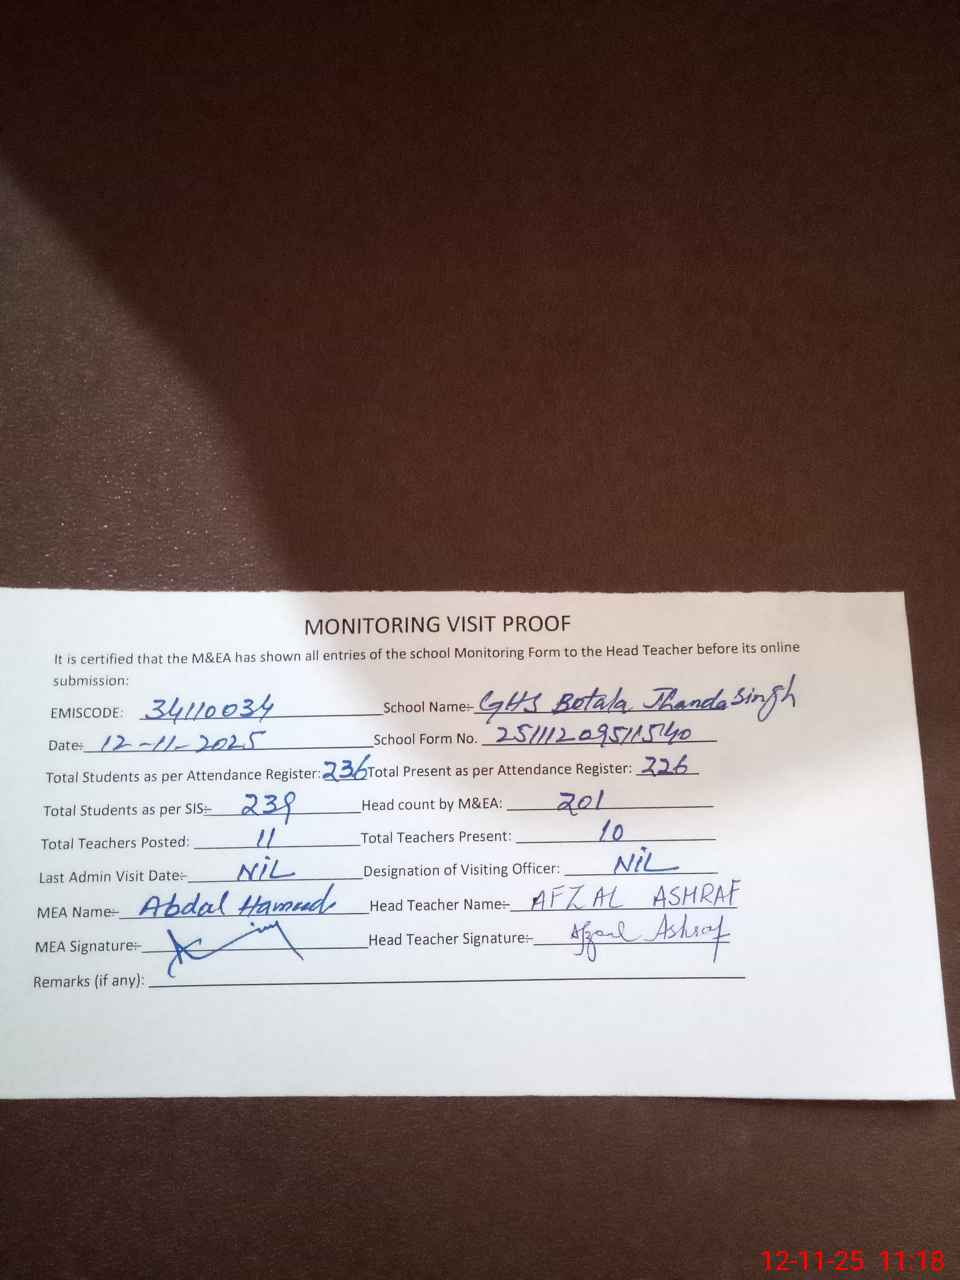 MONITORING VISIT PROOF
It is certified that the M&EA has shown all entries of the school Monitoring Form to the Head Teacher before its online
submission:
EMISCODE: 34110034 School Name:- GHS Botala Jhanda Singh
Date:- 12-11-2025 School Form No. 251112095111540
Total Students as per Attendance Register: 236 Total Present as per Attendance Register: 226
Total Students as per SIS:- 239 Head count by M&EA: 201
Total Teachers Posted: 11 Total Teachers Present: 10
Last Admin Visit Date:- NIL Designation of Visiting Officer: NIL
MEA Name:- Abdal Hameed Head Teacher Name:- AFZAL ASHRAF
MEA Signature:- Head Teacher Signature:- Afzaal Ashraf
Remarks (if any):
12-11-25 11:18